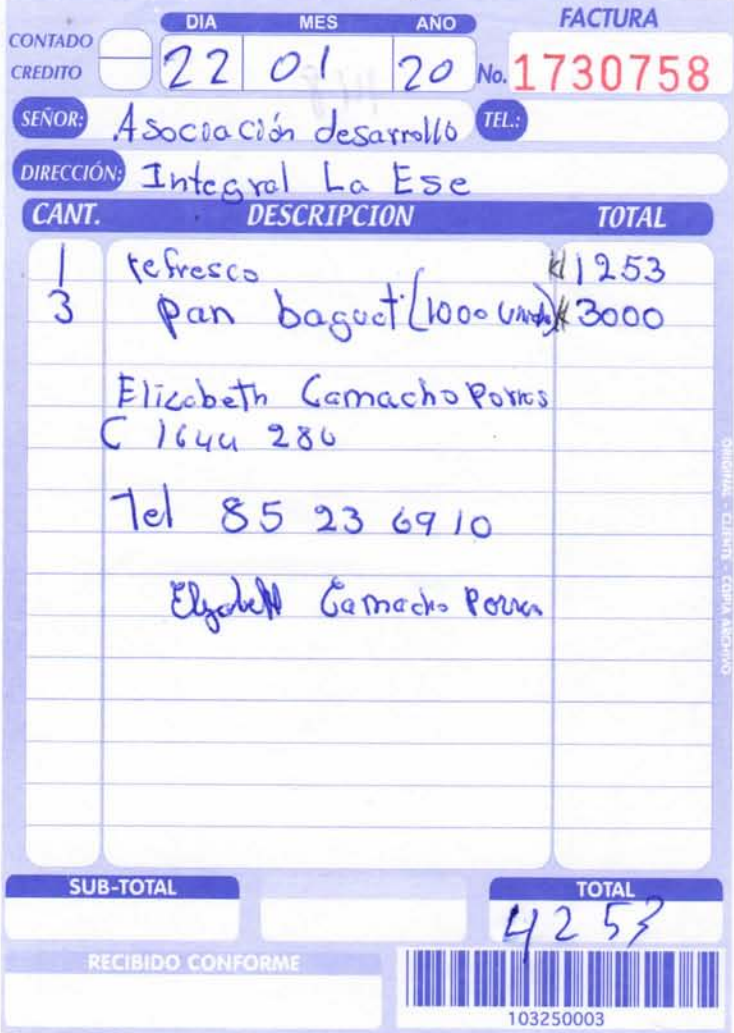 DIA MES AÑO FACTURA
CONTADO
CREDITO
22 01 20 No. 1730758
SEÑOR: Asociación desarrollo TEL.:
DIRECCIÓN: Integral La Ese
CANT. DESCRIPCION TOTAL
1 refresco ₡1253
3 pan baguet (1000 unida) ₡3000
Elizabeth Camacho Porras
C 1644 286
Tel 85 23 69 10
Elizabeth Camacho Porras
ORIGINAL - CLIENTE - COPIA ARCHIVO
SUB-TOTAL TOTAL
4253
RECIBIDO CONFORME
103250003